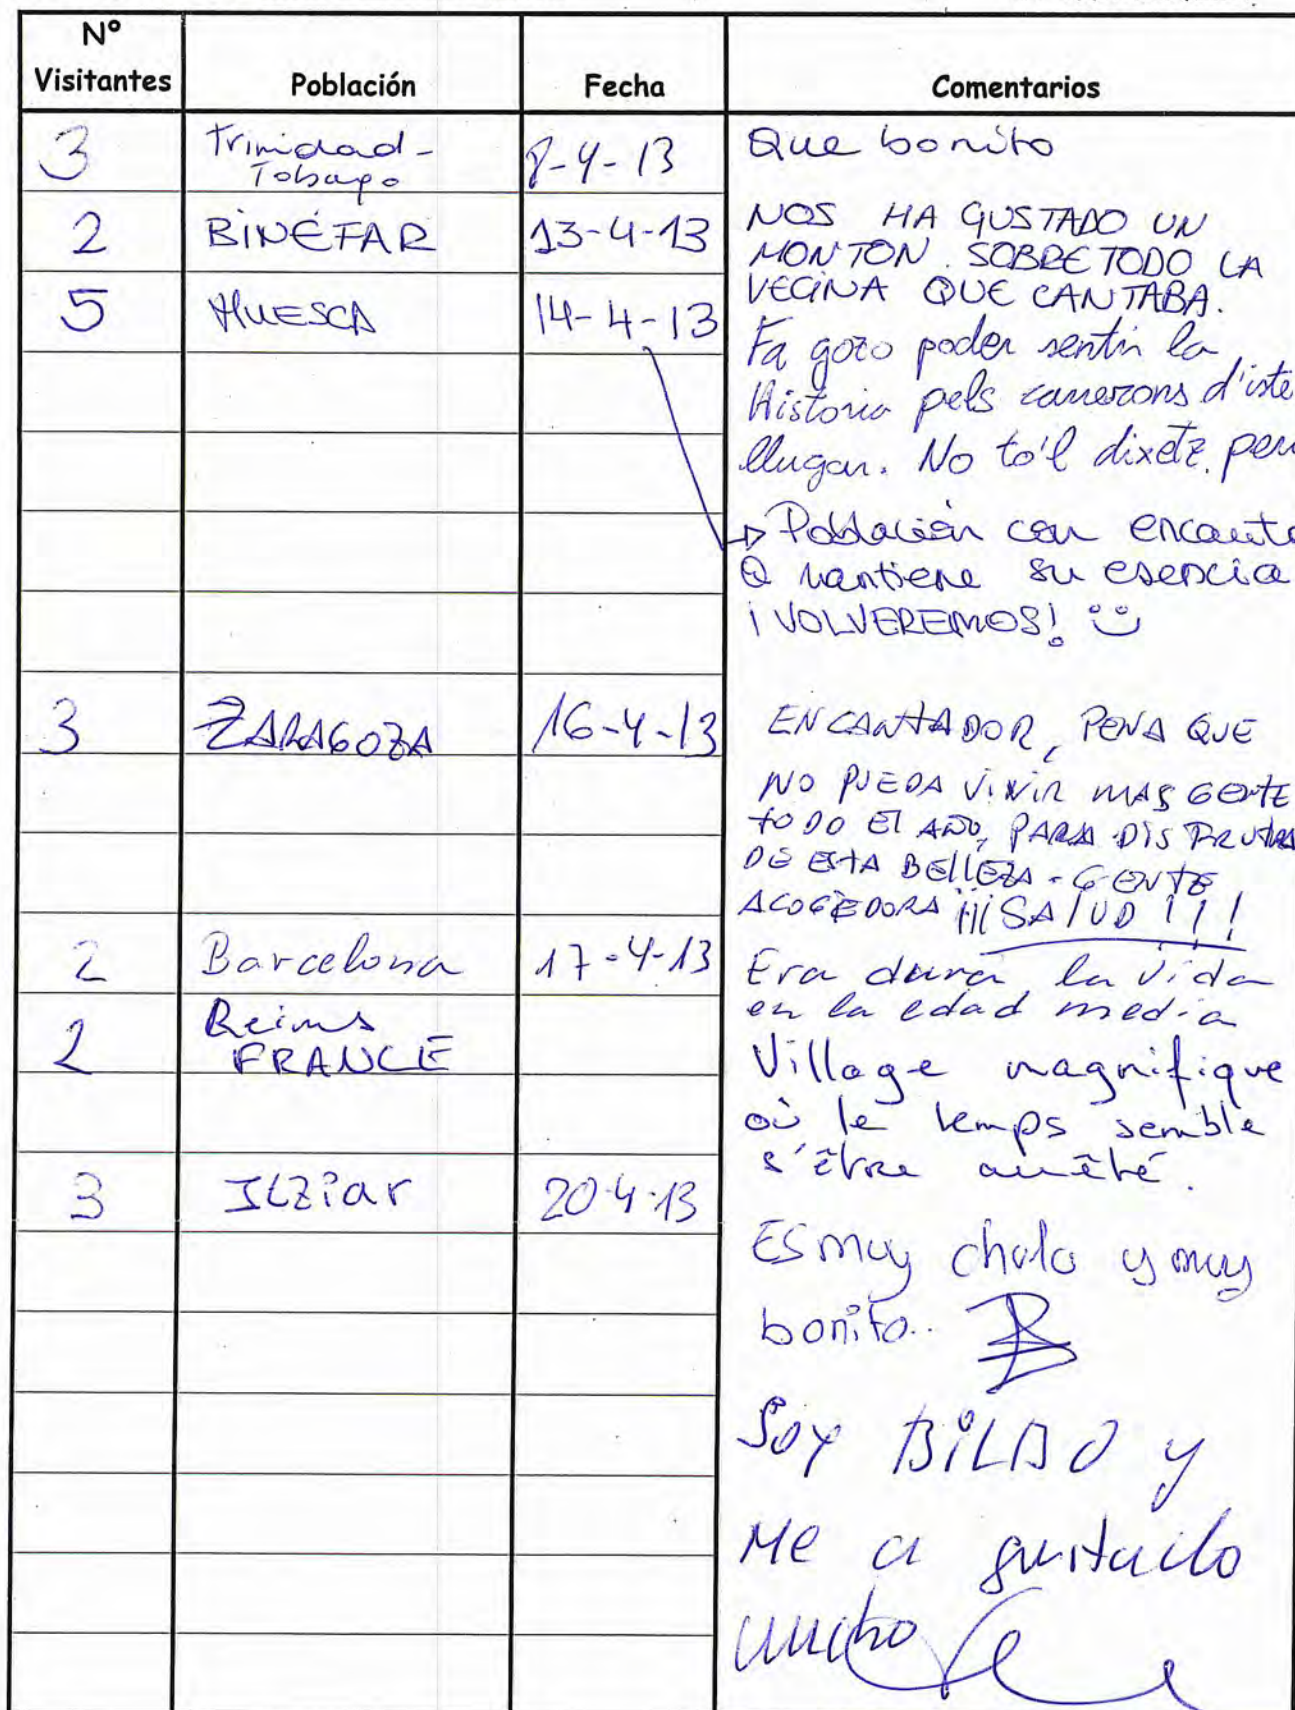 Nº
Visitantes Población Fecha Comentarios
3 Trinidad- 8-4-13 Que bonito
Tobago
2 BINÉFAR 13-4-13 NOS HA GUSTADO UN
MONTON. SOBRETODO LA
VECINA QUE CANTABA.
5 HUESCA 14-4-13
Fa gozo poder sentir la
Historia pels carrerons d'iste
llugar. No to'l dixetz
→ Población con encanto
Q mantiene su esencia
¡VOLVEREMOS!
3 ZARAGOZA 16-4-13 ENCANTADOR, PENA QUE
NO PUEDA ViViR MAS GENTE
TODO El AÑO, PARA DISFRUTAR
DE ESTA BEllEZA - GENTE
ACOGEDORA ¡¡¡SAlUD!!!
2 Barcelona 17-4-13 Era dura la vida
en la edad media
2 Reims Village magnifique
FRANCE où le temps semble
s'être arrêté.
3 20-4-13
ES muy chulo y muy
bonito..
Soy BiLBO y
Me a gustado
mucho